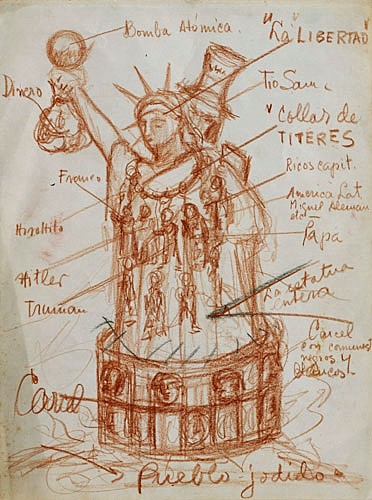 Bomba Atómica.
"La LIBERTAD"
Dinero
Tio Sam.
"Collar de
TITERES
Ricos capit.
Franco
America Lat.
Miguel Aleman
Papa
Hitler
Truman
La estatua
entera
Carcel
con comunist
negros y
blancos
Carcel
Pueblo jodido